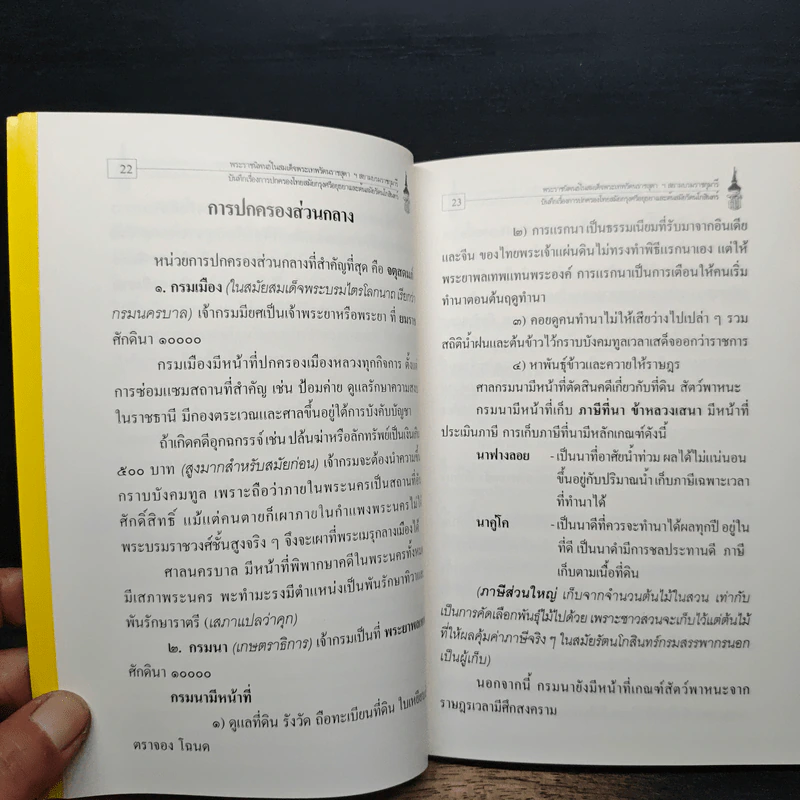 22
พระราชนิพนธ์ในสมเด็จพระเทพรัตนราชสุดา ฯ สยามบรมราชกุมารี
บันทึกเรื่องการปกครองไทยสมัยกรุงศรีอยุธยาและต้นสมัยรัตนโกสินทร์
การปกครองส่วนกลาง
หน่วยการปกครองส่วนกลางที่สำคัญที่สุด คือ จตุสดมภ์
๑. กรมเมือง (ในสมัยสมเด็จพระบรมไตรโลกนาถ เรียกว่า
กรมนครบาล) เจ้ากรมมียศเป็นเจ้าพระยาหรือพระยา ที่
ศักดินา ๑๐๐๐๐
กรมเมืองมีหน้าที่ปกครองเมืองหลวงทุกกิจการ ตั้งแต่
การซ่อมแซมสถานที่สำคัญ เช่น ป้อมค่าย ดูแลรักษาความสงบ
ในราชธานี มีกองตระเวณและศาลขึ้นอยู่ใต้การบังคับบัญชา
ถ้าเกิดคดีอุกฉกรรจ์ เช่น ปล้นฆ่าหรือลักทรัพย์เป็นเงินเกิน
๕๐๐ บาท (สูงมากสำหรับสมัยก่อน) เจ้ากรมจะต้องนำความขึ้น
กราบบังคมทูล เพราะถือว่าภายในพระนครเป็นสถานที่
ศักดิ์สิทธิ์ แม้แต่คนตายก็เผาภายในกำแพงพระนครไม่ได้
พระบรมราชวงศ์ชั้นสูงจริง ๆ จึงจะเผาที่พระเมรุกลางเมืองได้
ศาลนครบาล มีหน้าที่พิพากษาคดีในพระนครทั้งหมด
มีเสภาพระนคร พะทำมะรงมีตำแหน่งเป็นพันรักษาทิวา
พันรักษาราตรี (เสภาแปลว่าคุก)
๒. กรมนา (เกษตราธิการ) เจ้ากรมเป็นที่ พระยาพลเทพ
ศักดินา ๑๐๐๐๐
กรมนามีหน้าที่
๑) ดูแลที่ดิน รังวัด ถือทะเบียนที่ดิน ใบเหยียบย่ำ
ตราจอง โฉนด
23
พระราชนิพนธ์ในสมเด็จพระเทพรัตนราชสุดา ฯ สยามบรมราชกุมารี
บันทึกเรื่องการปกครองไทยสมัยกรุงศรีอยุธยาและต้นสมัยรัตนโกสินทร์
๒) การแรกนา เป็นธรรมเนียมที่รับมาจากอินเดีย
และจีน ของไทยพระเจ้าแผ่นดินไม่ทรงทำพิธีแรกนาเอง แต่ให้
พระยาพลเทพแทนพระองค์ การแรกนาเป็นการเตือนให้คนเริ่ม
ทำนาตอนต้นฤดูทำนา
๓) คอยดูคนทำนาไม่ให้เสียว่างไปเปล่า ๆ รวม
สถิติน้ำฝนและต้นข้าวไว้กราบบังคมทูลเวลาเสด็จออกว่าราชการ
๔) หาพันธุ์ข้าวและควายให้ราษฎร
ศาลกรมนามีหน้าที่ตัดสินคดีเกี่ยวกับที่ดิน สัตว์พาหนะ
กรมนามีหน้าที่เก็บ ภาษีที่นา ข้าหลวงเสนา มีหน้าที่
ประเมินภาษี การเก็บภาษีที่นามีหลักเกณฑ์ดังนี้
นาฟางลอย - เป็นนาที่อาศัยน้ำท่วม ผลได้ไม่แน่นอน
ขึ้นอยู่กับปริมาณน้ำ เก็บภาษีเฉพาะเวลา
ที่ทำนาได้
นาคู่โค - เป็นนาดีที่ควรจะทำนาได้ผลทุกปี อยู่ใน
ที่ดี เป็นนาดำมีการชลประทานดี ภาษี
เก็บตามเนื้อที่ดิน
(ภาษีส่วนใหญ่ เก็บจากจำนวนต้นไม้ในสวน เท่ากับ
เป็นการคัดเลือกพันธุ์ไม้ไปด้วย เพราะชาวสวนจะเก็บไว้แต่ต้นไม้
ที่ให้ผลคุ้มค่าภาษีจริง ๆ ในสมัยรัตนโกสินทร์กรมสรรพากรนอก
เป็นผู้เก็บ)
นอกจากนี้ กรมนายังมีหน้าที่เกณฑ์สัตว์พาหนะจาก
ราษฎรเวลามีศึกสงคราม